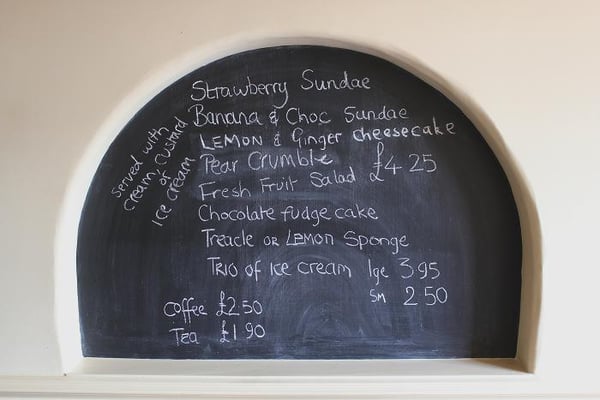 Strawberry Sundae
Banana & Choc Sundae
LEMON & Ginger cheesecake
Pear Crumble
£4 25
Fresh Fruit Salad
Chocolate fudge cake
Treacle OR LEMON Sponge
TRIO of Ice cream lge 3.95
Sm 2 50
Served with
Cream, Custard
or
Ice Cream
Coffee £2.50
Tea £1 90